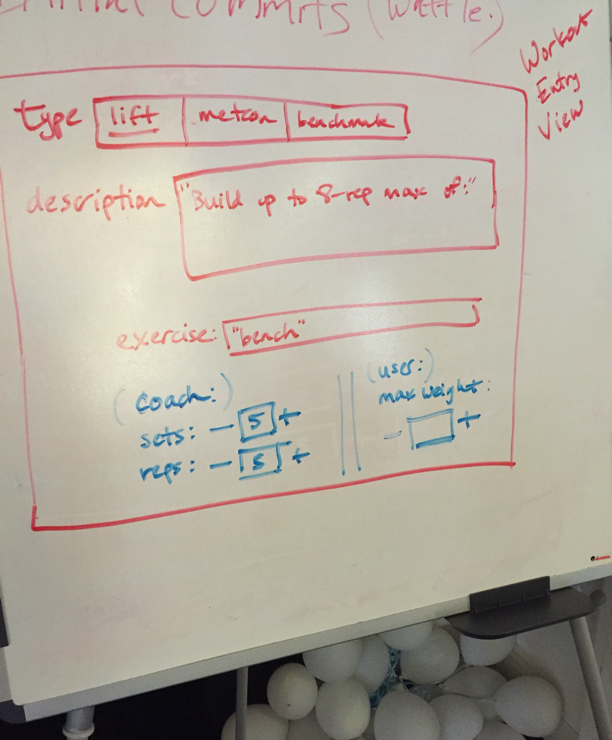 Commits (Wattle.)
Workout
Entry
View
type lift metcon benchmark
description "Build up to 8-rep max of:"
exercise: "bench"
(coach:)
sets: - 5 +
reps: - 5 +
(user:)
max weight:
- +